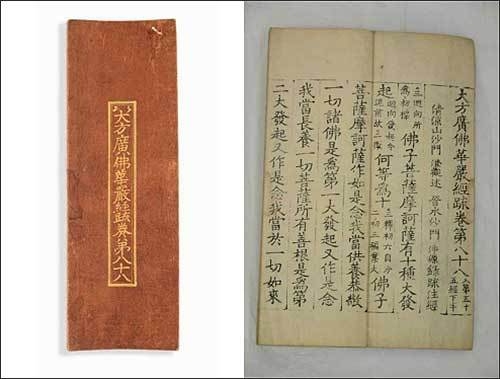 大方廣佛華嚴經疏卷第八十八
大方廣佛華嚴經疏卷第八十八
清涼山沙門 澄觀述 晉水沙門 淨源録疏注經
佛子菩薩摩訶薩有十種大發
起 何等爲十 佛子
菩薩摩訶薩作如是念我當供養恭敬
一切諸佛是爲第一大發起又作是念
我當長養一切菩薩所有善根是爲第
二大發起又作是念我當於一切如來